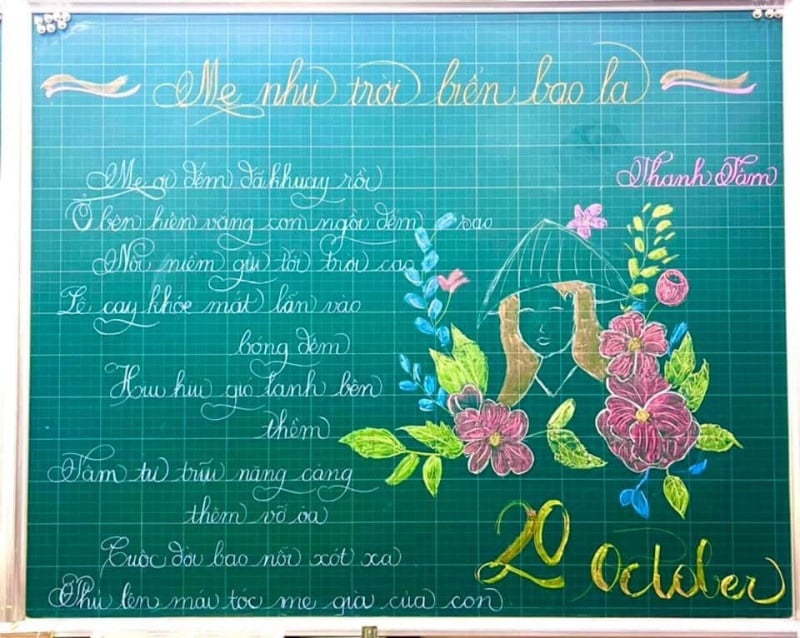 Mẹ như trời biển bao la
Thanh Tâm
Mẹ ơi đếm đã khuya rồi
Ở bên hiên vắng con ngồi đếm sao
Nỗi niềm gửi tới trời cao
Lệ cay khóe mắt lẫn vào
bóng đêm
Hiu hiu gió lạnh bên
thềm
Tâm tư trĩu nặng càng
thêm vỡ òa
Cuộc đời bao nỗi xót xa
Phủ lên mái tóc mẹ già của con
20 October